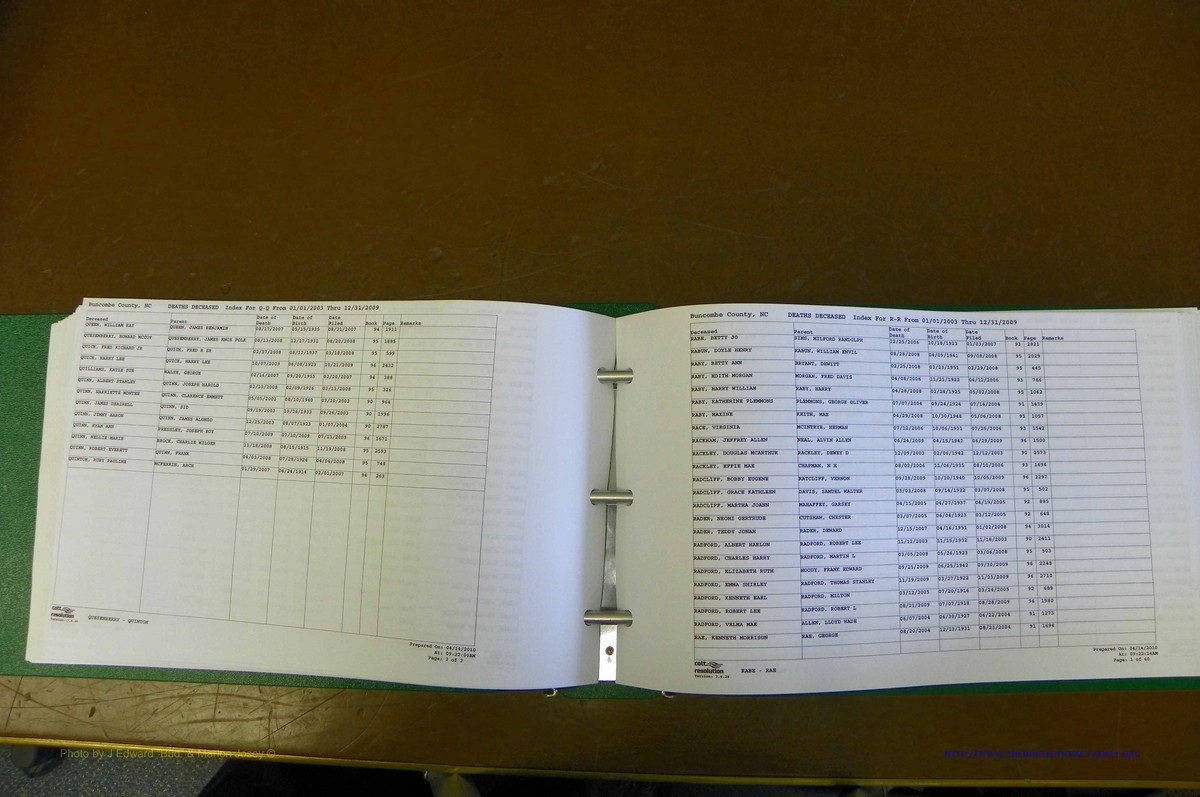 Buncombe County, NC DEATHS DECEASED Index For Q-Q From 01/01/2003 Thru 12/31/2009
Deceased Parent Date of Death Date of Birth Date Filed Book Page Remarks
QUEEN, WILLIAM RAY QUEEN, JAMES BENJAMIN 08/17/2007 05/15/1935 08/21/2007 94 1911
QUESENBERRY, HOWARD MCCOY QUESENBERRY, JAMES ENOS POLK 08/13/2008 12/17/1931 08/20/2008 95 1885
QUICK, FRED RICHARD JR QUICK, FRED R SR 02/27/2008 08/12/1937 03/18/2008 95 599
QUICK, HARRY LEE QUICK, HARRY LEE 10/07/2009 06/08/1921 10/21/2009 96 2432
QUILLIAMS, DAVID SUE WALSH, GEORGE 02/16/2007 09/20/1955 02/20/2007 94 388
QUINN, ALBERT STANLEY QUINN, JOSEPH HAROLD 02/13/2008 02/09/1926 02/13/2008 95 326
QUINN, HARRIETTE MONTEZ QUINN, CLARENCE EMMETT 05/05/2003 08/10/1940 07/10/2003 90 904
QUINN, JAMES DEADRELL QUINN, SID 09/19/2003 10/26/1933 09/26/2003 90 1996
QUINN, JIMMY AARON QUINN, JAMES ALONZO 12/25/2003 08/07/1923 01/07/2004 90 2787
QUINN, RYAN ANN PRESSLEY, JOSEPH ROY 07/10/2009 07/10/2009 07/13/2009 96 1671
QUINN, NELLIE MARIE BROCK, CHARLIE WILDER 11/16/2008 08/15/1915 11/19/2008 95 2593
QUINN, ROBERT EVERETT QUINN, FRANK 04/03/2008 07/28/1924 04/04/2008 95 748
QUINTON, RUBY PAULINE MCPERRIN, ARCH 01/28/2007 04/24/1914 02/01/2007 94 263
cott resolution
QUESENBERRY - QUINTON
Prepared On: 04/14/2010
At: 09:22:00AM
Page: 2 of 2
Buncombe County, NC DEATHS DECEASED Index For R-R From 01/01/2003 Thru 12/31/2009
Deceased Parent Date of Death Date of Birth Date Filed Book Page Remarks
RABE, BETTY JO SIMS, MILFORD RANDOLPH 12/25/2006 10/18/1923 01/03/2007 95 2821
RABUN, DOYLE HENRY RABUN, WILLIAM ENVIL 08/26/2008 04/09/1941 09/08/2008 95 2028
RABY, BETTY ANN BRYANT, DEWITT 02/25/2008 03/23/1951 02/29/2008 95 465
RABY, EDITH MORGAN MORGAN, FRED DAVIS 04/08/2006 11/21/1922 04/12/2006 93 786
RABY, HARRY WILLIAM RABY, HARRY 04/28/2008 02/28/1925 05/02/2008 95 1042
RABY, KATHERINE PLEMMONS PLEMMONS, GEORGE OLIVER 07/07/2004 09/24/1924 07/14/2004 91 1439
RABY, MAXINE KEITH, MAX 04/29/2008 10/30/1948 05/06/2008 95 1057
RACE, VIRGINIA MCINTYRE, HERMAN 07/12/2006 10/06/1931 07/25/2006 93 1542
RACKHAM, JEFFREY ALLEN NEAL, ALVIN ALLEN 06/24/2009 04/15/1942 06/29/2009 96 1500
RACKLEY, DOUGLAS MCARTHUR RACKLEY, DEWEY D 12/09/2003 02/06/1942 12/12/2003 90 2573
RACKLEY, EFFIE MAE CHAPMAN, H H 08/02/2006 11/06/1935 08/10/2006 93 1696
RADCLIFF, BOBBY EUGENE RATCLIFF, VERNON 09/28/2009 10/10/1940 10/05/2009 96 2297
RADCLIFF, GRACE KATHLEEN DAVIS, SAMUEL WALTER 03/03/2008 09/14/1922 03/07/2008 95 502
RADCLIFF, MARTHA JOANN MAHAFFEY, GARSEY 04/15/2005 04/27/1937 04/19/2005 92 885
RADER, NEOMI GERTRUDE CUTSHAW, CHESTER 03/07/2005 06/04/1923 03/12/2005 92 648
RADER, TEDDY JONAH RADER, DEWARD 12/15/2007 04/16/1951 01/02/2008 94 3014
RADFORD, ALBERT HARLON RADFORD, ROBERT LEE 11/12/2003 11/15/1932 11/18/2003 90 2411
RADFORD, CHARLES HARRY RADFORD, MARTIN L 03/05/2008 05/26/1923 03/06/2008 95 503
RADFORD, ELIZABETH RUTH MOODY, FRANK EDWARD 09/25/2009 06/25/1942 09/30/2009 96 2248
RADFORD, EMMA SHIRLEY RADFORD, THOMAS STANLEY 11/19/2009 03/27/1922 11/23/2009 96 2710
RADFORD, KENNETH EARL RADFORD, MILTON 03/12/2005 07/20/1916 03/24/2005 92 689
RADFORD, ROBERT LEE RADFORD, ROBERT L 08/21/2009 07/07/1918 08/28/2009 96 1980
RADFORD, VELMA MAE ALLEN, LLOYD WADE 06/07/2004 06/30/1927 06/22/2004 91 1273
RAE, KENNETH MORRISON RAE, GEORGE 08/20/2004 12/13/1931 08/23/2004 91 1694
cott resolution
RABE - RAE
Prepared On: 04/14/2010
At: 09:22:16AM
Page: 1 of 60
Photo by J Edward "Bud" & Marion Josey ©